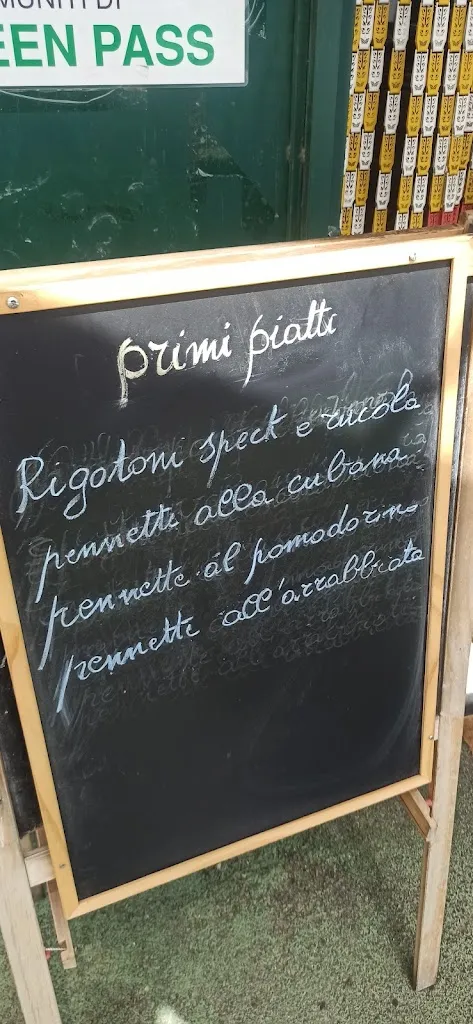 MUNITI DI
EEN PASS
primi piatti
Rigotoni speck e rucola
pennette alla cubana
pennette al pomodorino
pennette all'arrabbiata